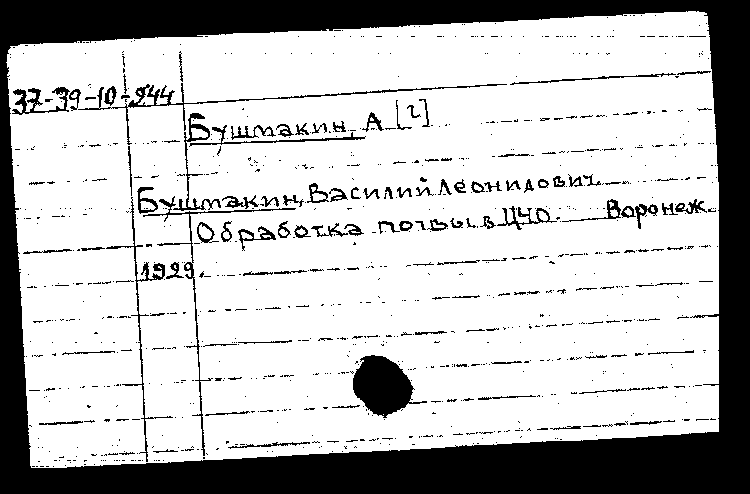 37-39-10-244
Бушмакин, А [2]
Бушмакин, Василий Леонидович.
Обработка почвы в ЦЧО. Воронеж.
1929.